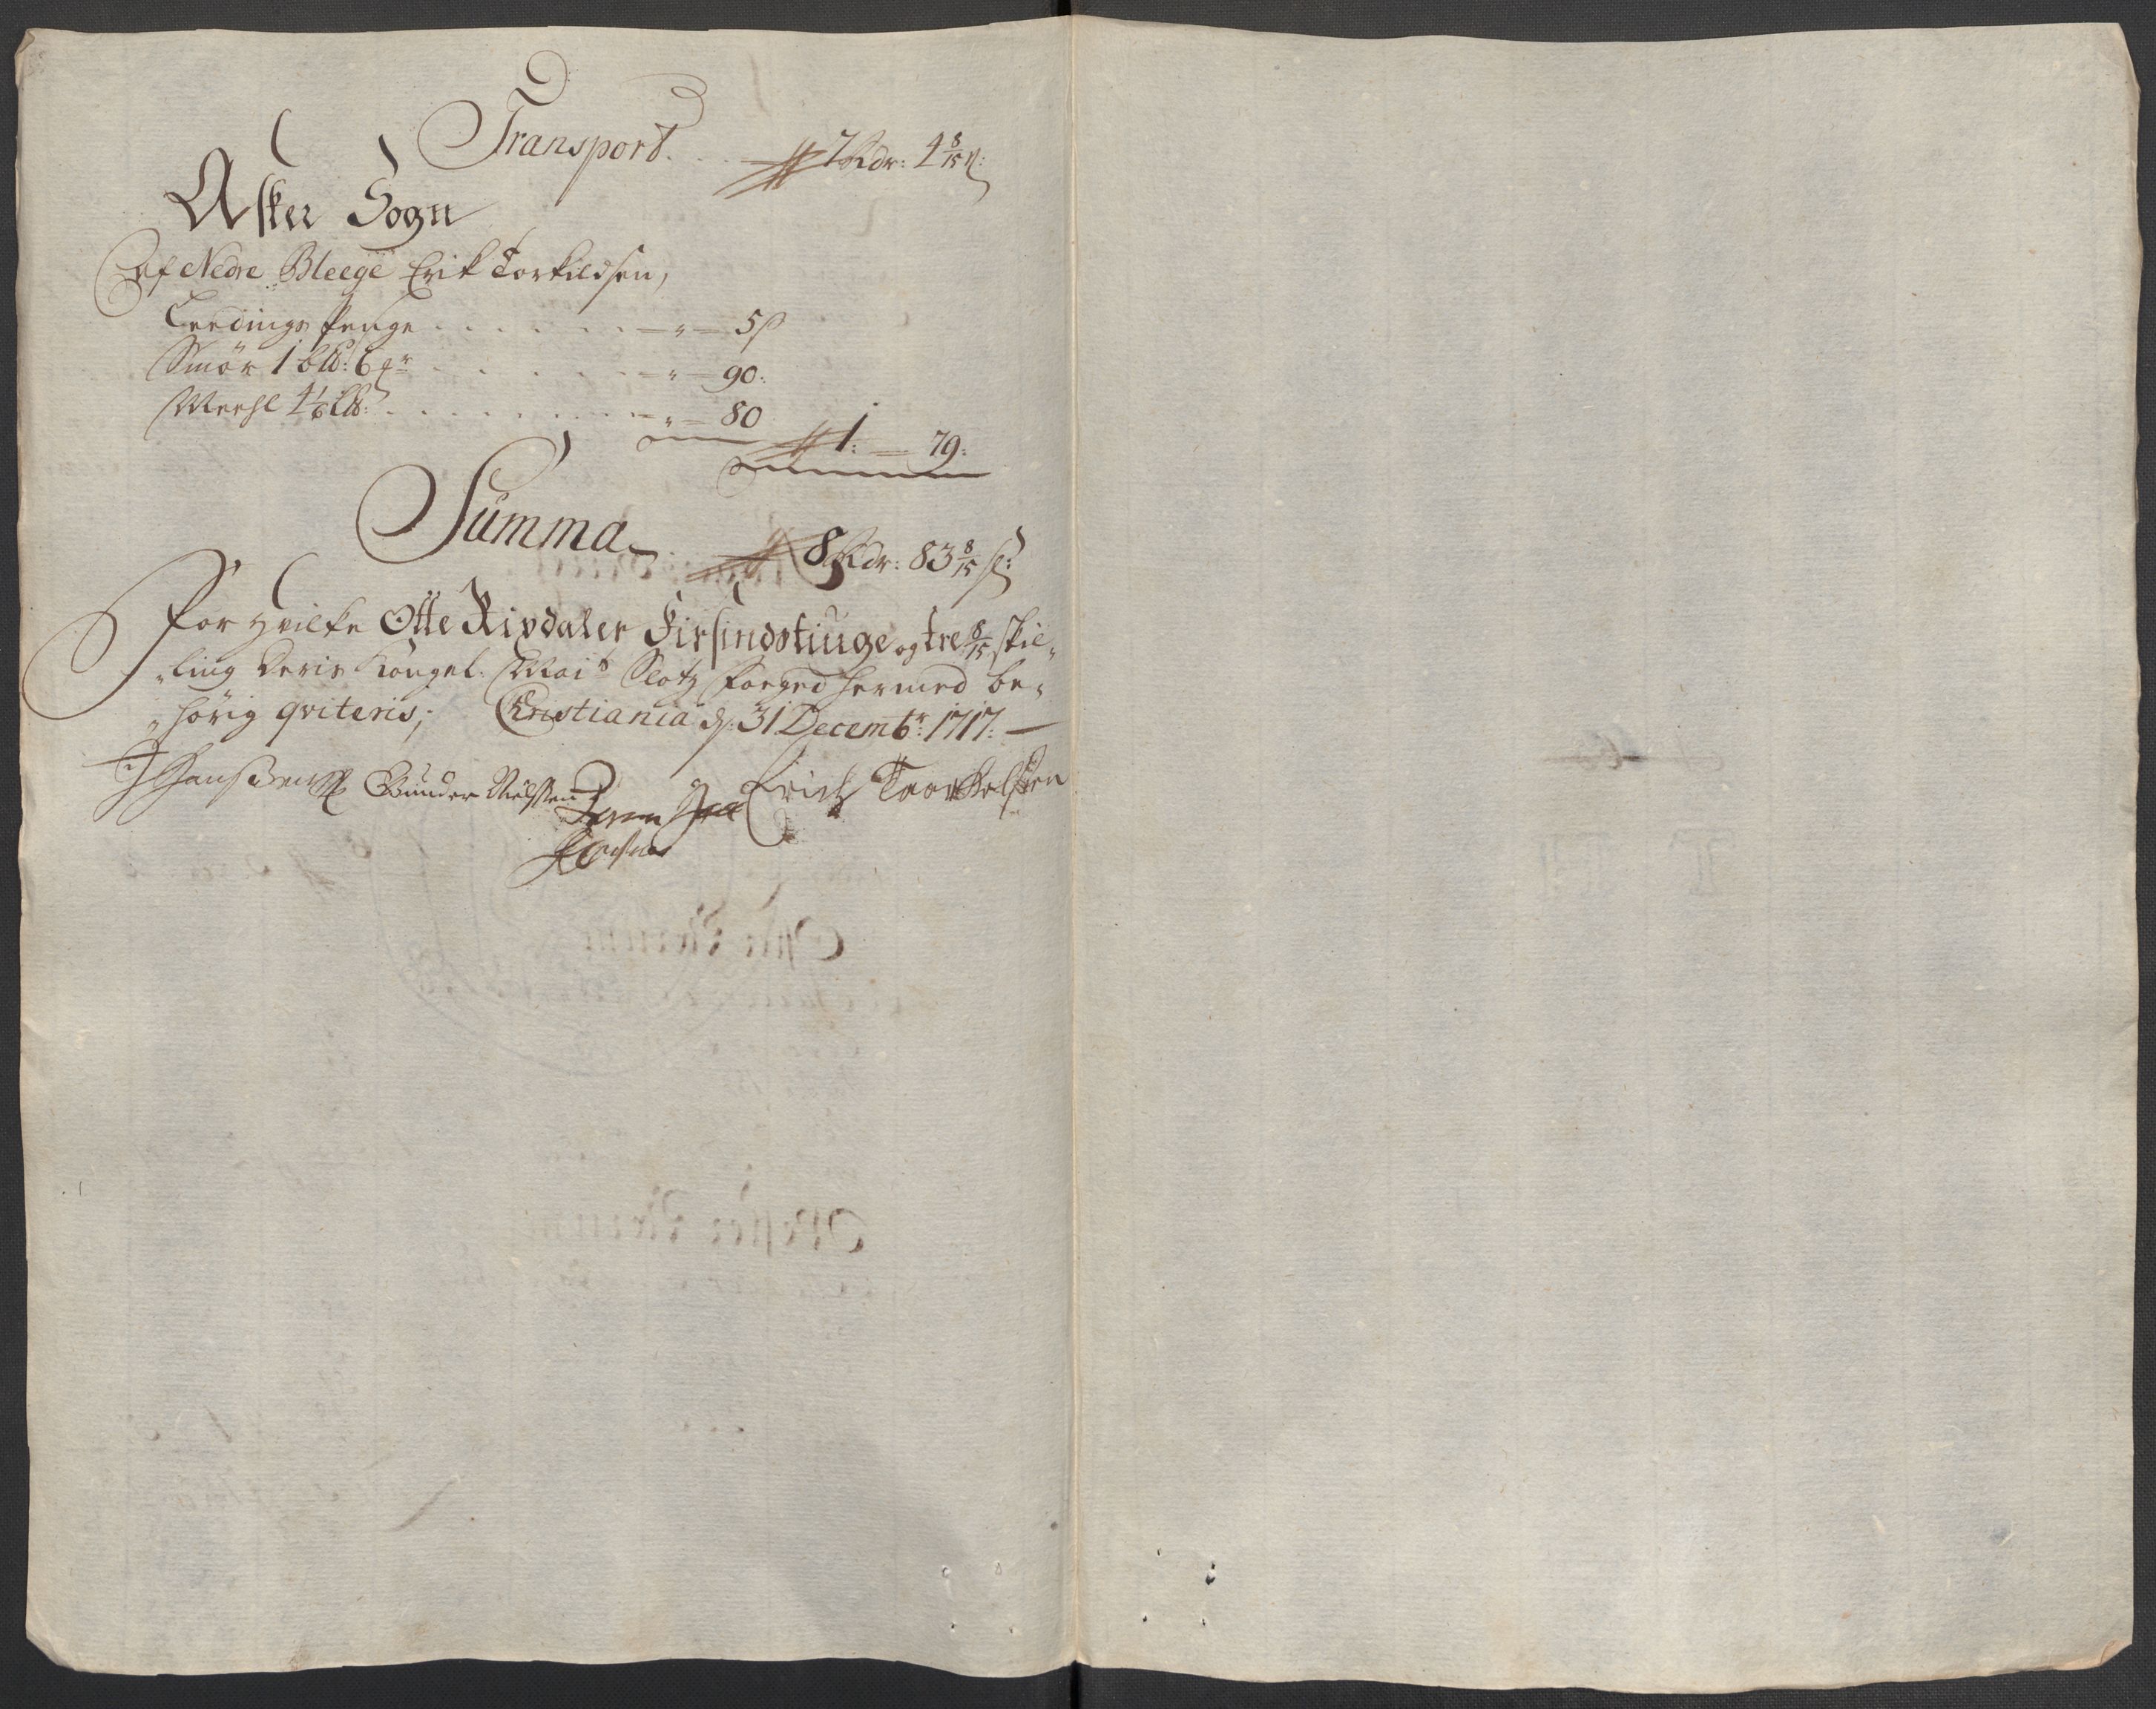 Transport . . . 7 Rdr: 4 8/15 ß:
Asker Sogn
Af Nedre Bleege Erik Torkildsen,
Leedings Penge . . . . . . . — " — 5 ß
Smör 1 b℔: 6 . . . . . . — " — 90:
Meehl 4 1/6 L℔: . . . . . . . . — " — 80
1: — 79:
Summa 8 Rdr: 83 8/15 ß:
For hvilke Otte Rixdaler Firsindstiuge og tre 8/15 skil„
„ling Deris Kongel: Mait Slotz Foeged hermed be„
„hörig qviteris; Christiania d: 31 Decembr: 1717: —
Gunder Nielssen Erich Taarkelsen